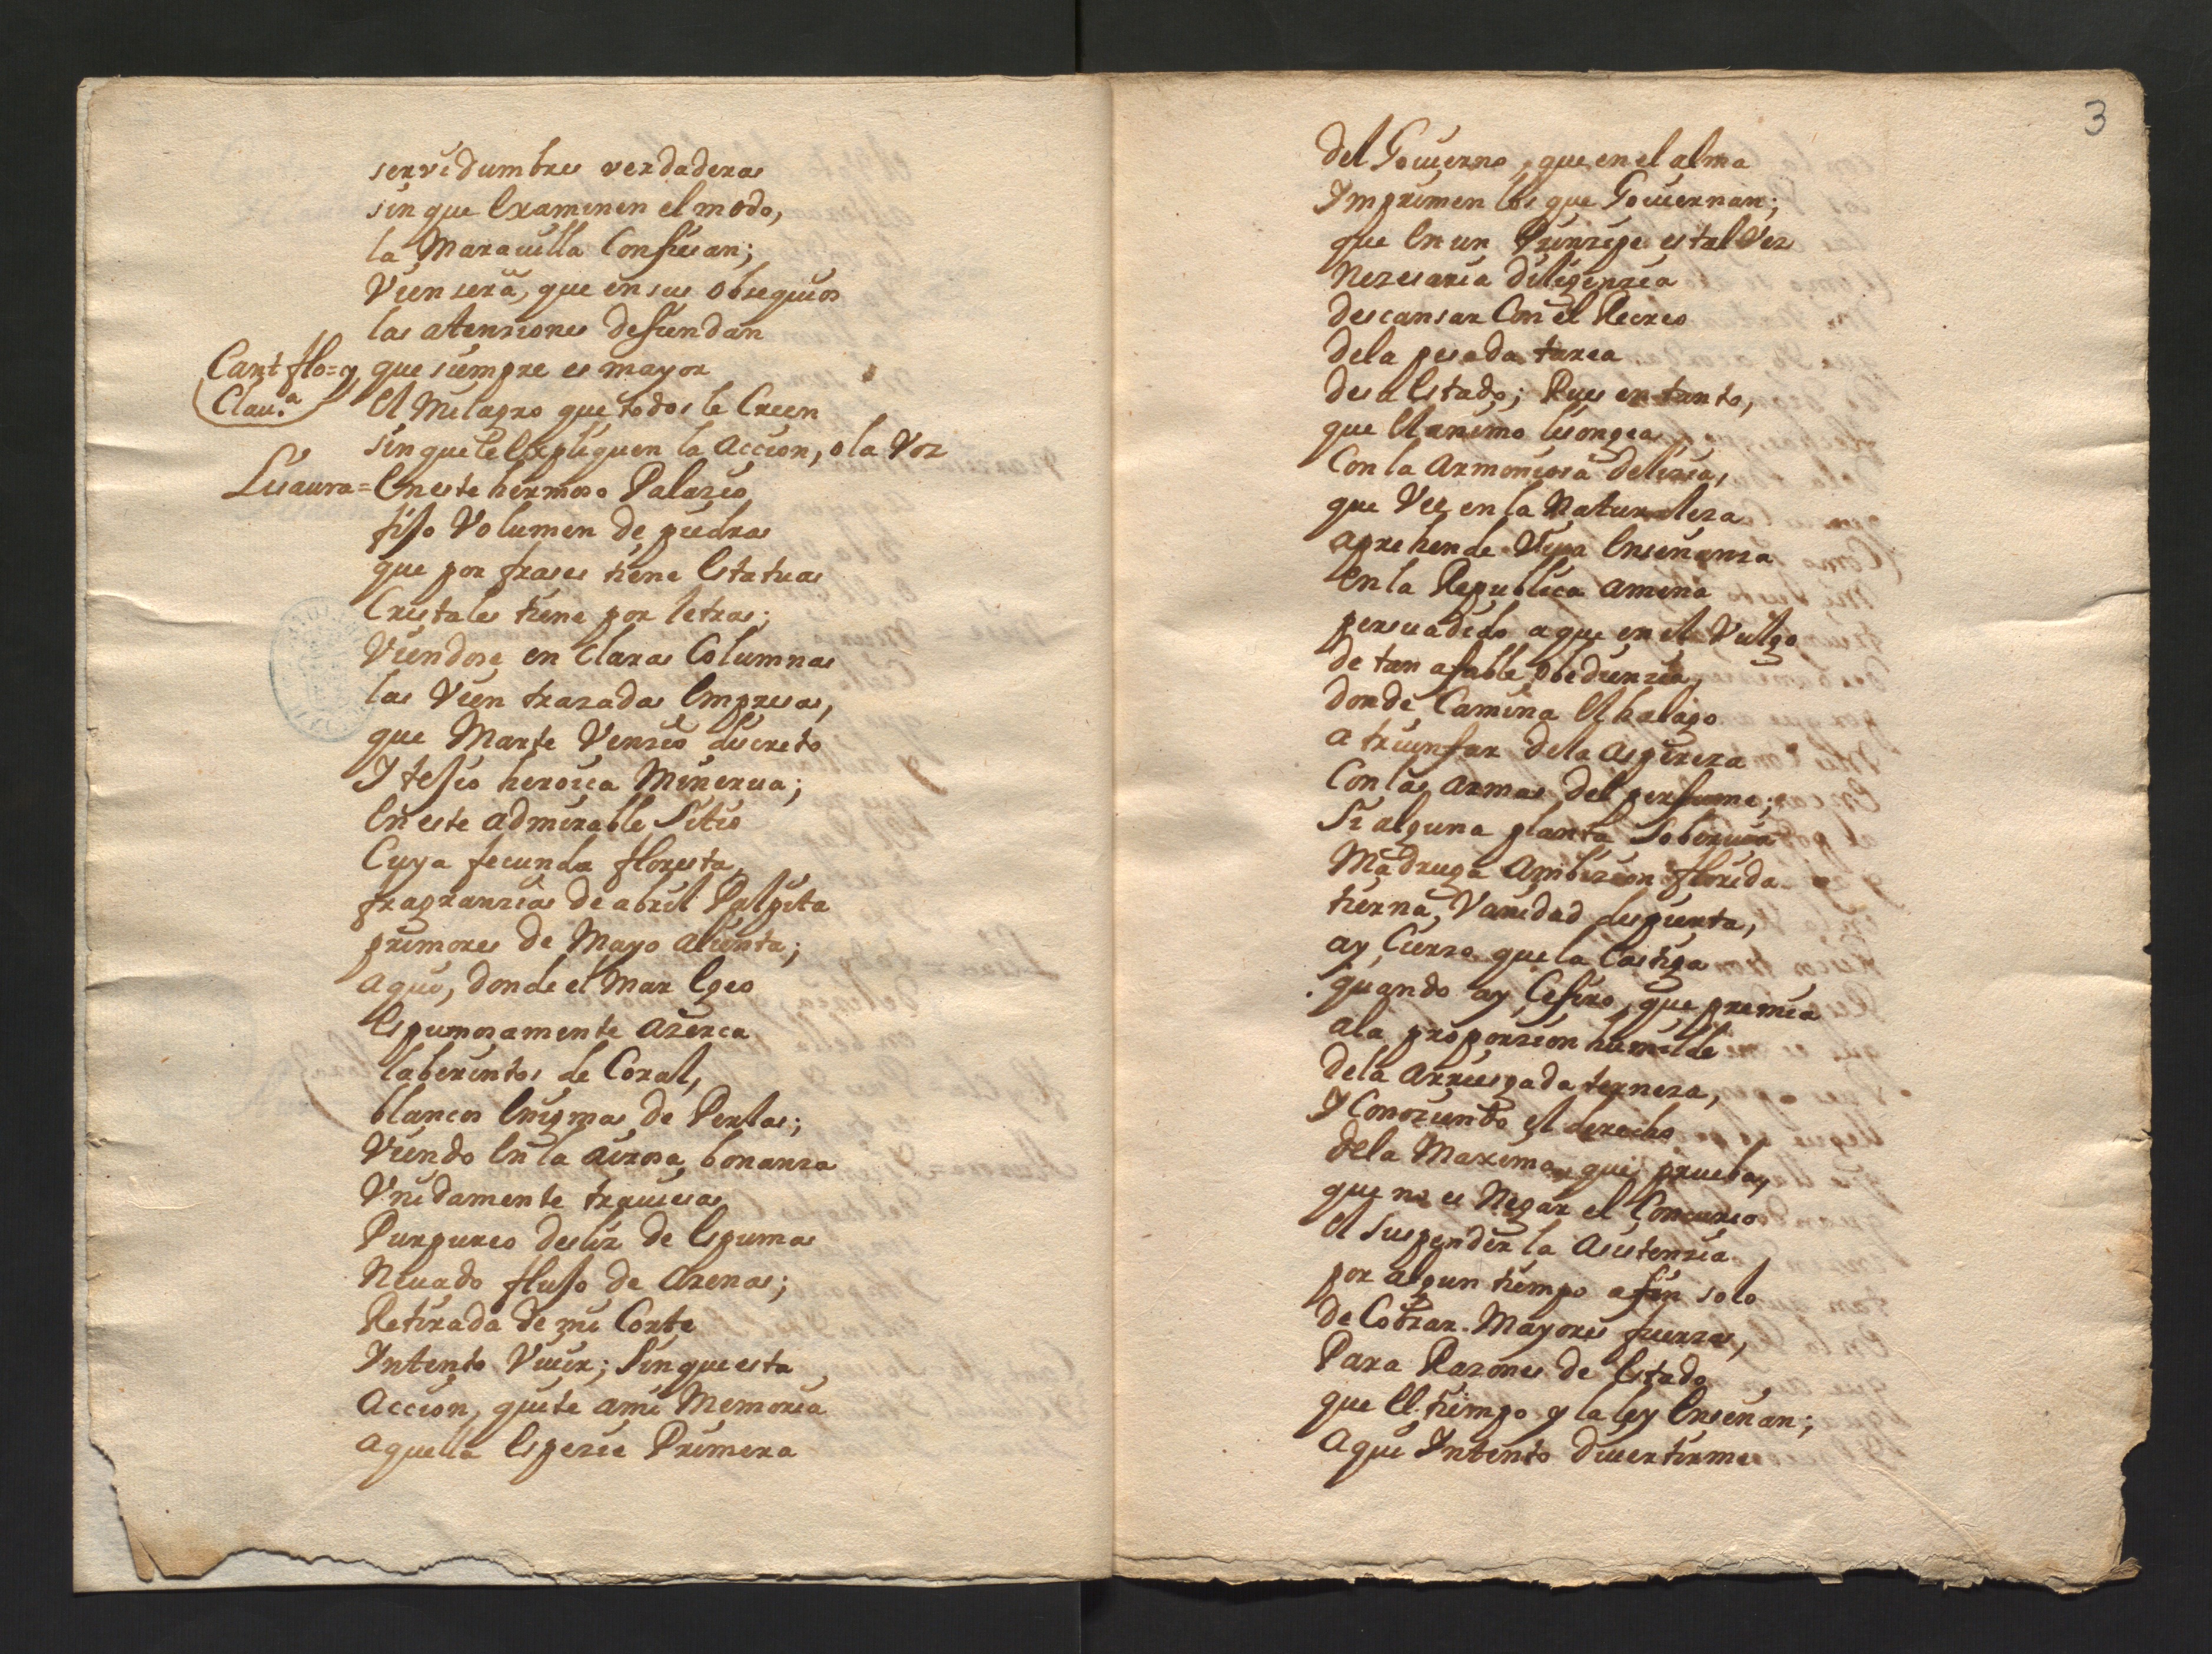 servidumbres verdaderas
sin que Examinen el modo,
la Marauilla Confiesan;
Vien será, que en sus obsequios
las atensiones defiendan
Cant flo=y que siempre es mayor
Clau.ª El Milagro que todos le Creen
sin que le Expliquen la accion, o la Voz
Lisaura= En este hermoso Palazio
fijo Volumen de piedras
que por frases tiene Estatuas
Cristales tiene por letras;
Viendose en Claras Columnas
las Vien trazadas Empresas,
que Marte Venzio discreto
Y tejio heroica Minerua;
En este admirable Sitio
Cuya fecunda floresta
fragranzias de abril Palpita
primores de Mayo alienta;
aqui, donde el mar Egeo
Espumosamente azerca
laberintos de Coral,
blancos Enigmas de Perlas;
Viendo En la airosa bonanza
Vnidamente trauiesas
Purpureo desliz de Espumas
Neuado flujo de arenas;
Retirada de mi Corte
Intento Viuir; Sin que esta
Accion, quite a mi Memoria
aquella Espezie Primera
3
del Gouierno, que en el alma
Imprimen los que Gouiernan;
que En un Prinzipe es tal Vez
Nezesaria diligenzia
descansar Con el Recreo
de la pesada tarea
des u Estado; Pues en tanto,
que El animo lisongea
Con la Armoniosa delizia,
que Vee en la Naturaleza
aprehende Viua Enseñanza
En la Republica amena
persuadido a que en el Vulgo
de tan afable obedienzia,
donde Camina El halago
a triunfar de la aspereza
Con las armas del perfume;
Si alguna planta Soberuia
Madruga Ambizion florida
tierna, Vanidad despierta,
ay Cierzo que la Castiga
quando ay Cefiro, que premia
a la proporzion humilde
de la arriesgada terneza,
Y Conoziendo el derecho
de la Maxima, que prueba,
que no es Negar el Concurso
el Suspender la Asistenzia
por algun tiempo a fin solo
de Cobrar Mayores fuerzas,
Para Razones de Estado
que El tiempo y la ley Enseñan;
Aqui Intento diuertirme